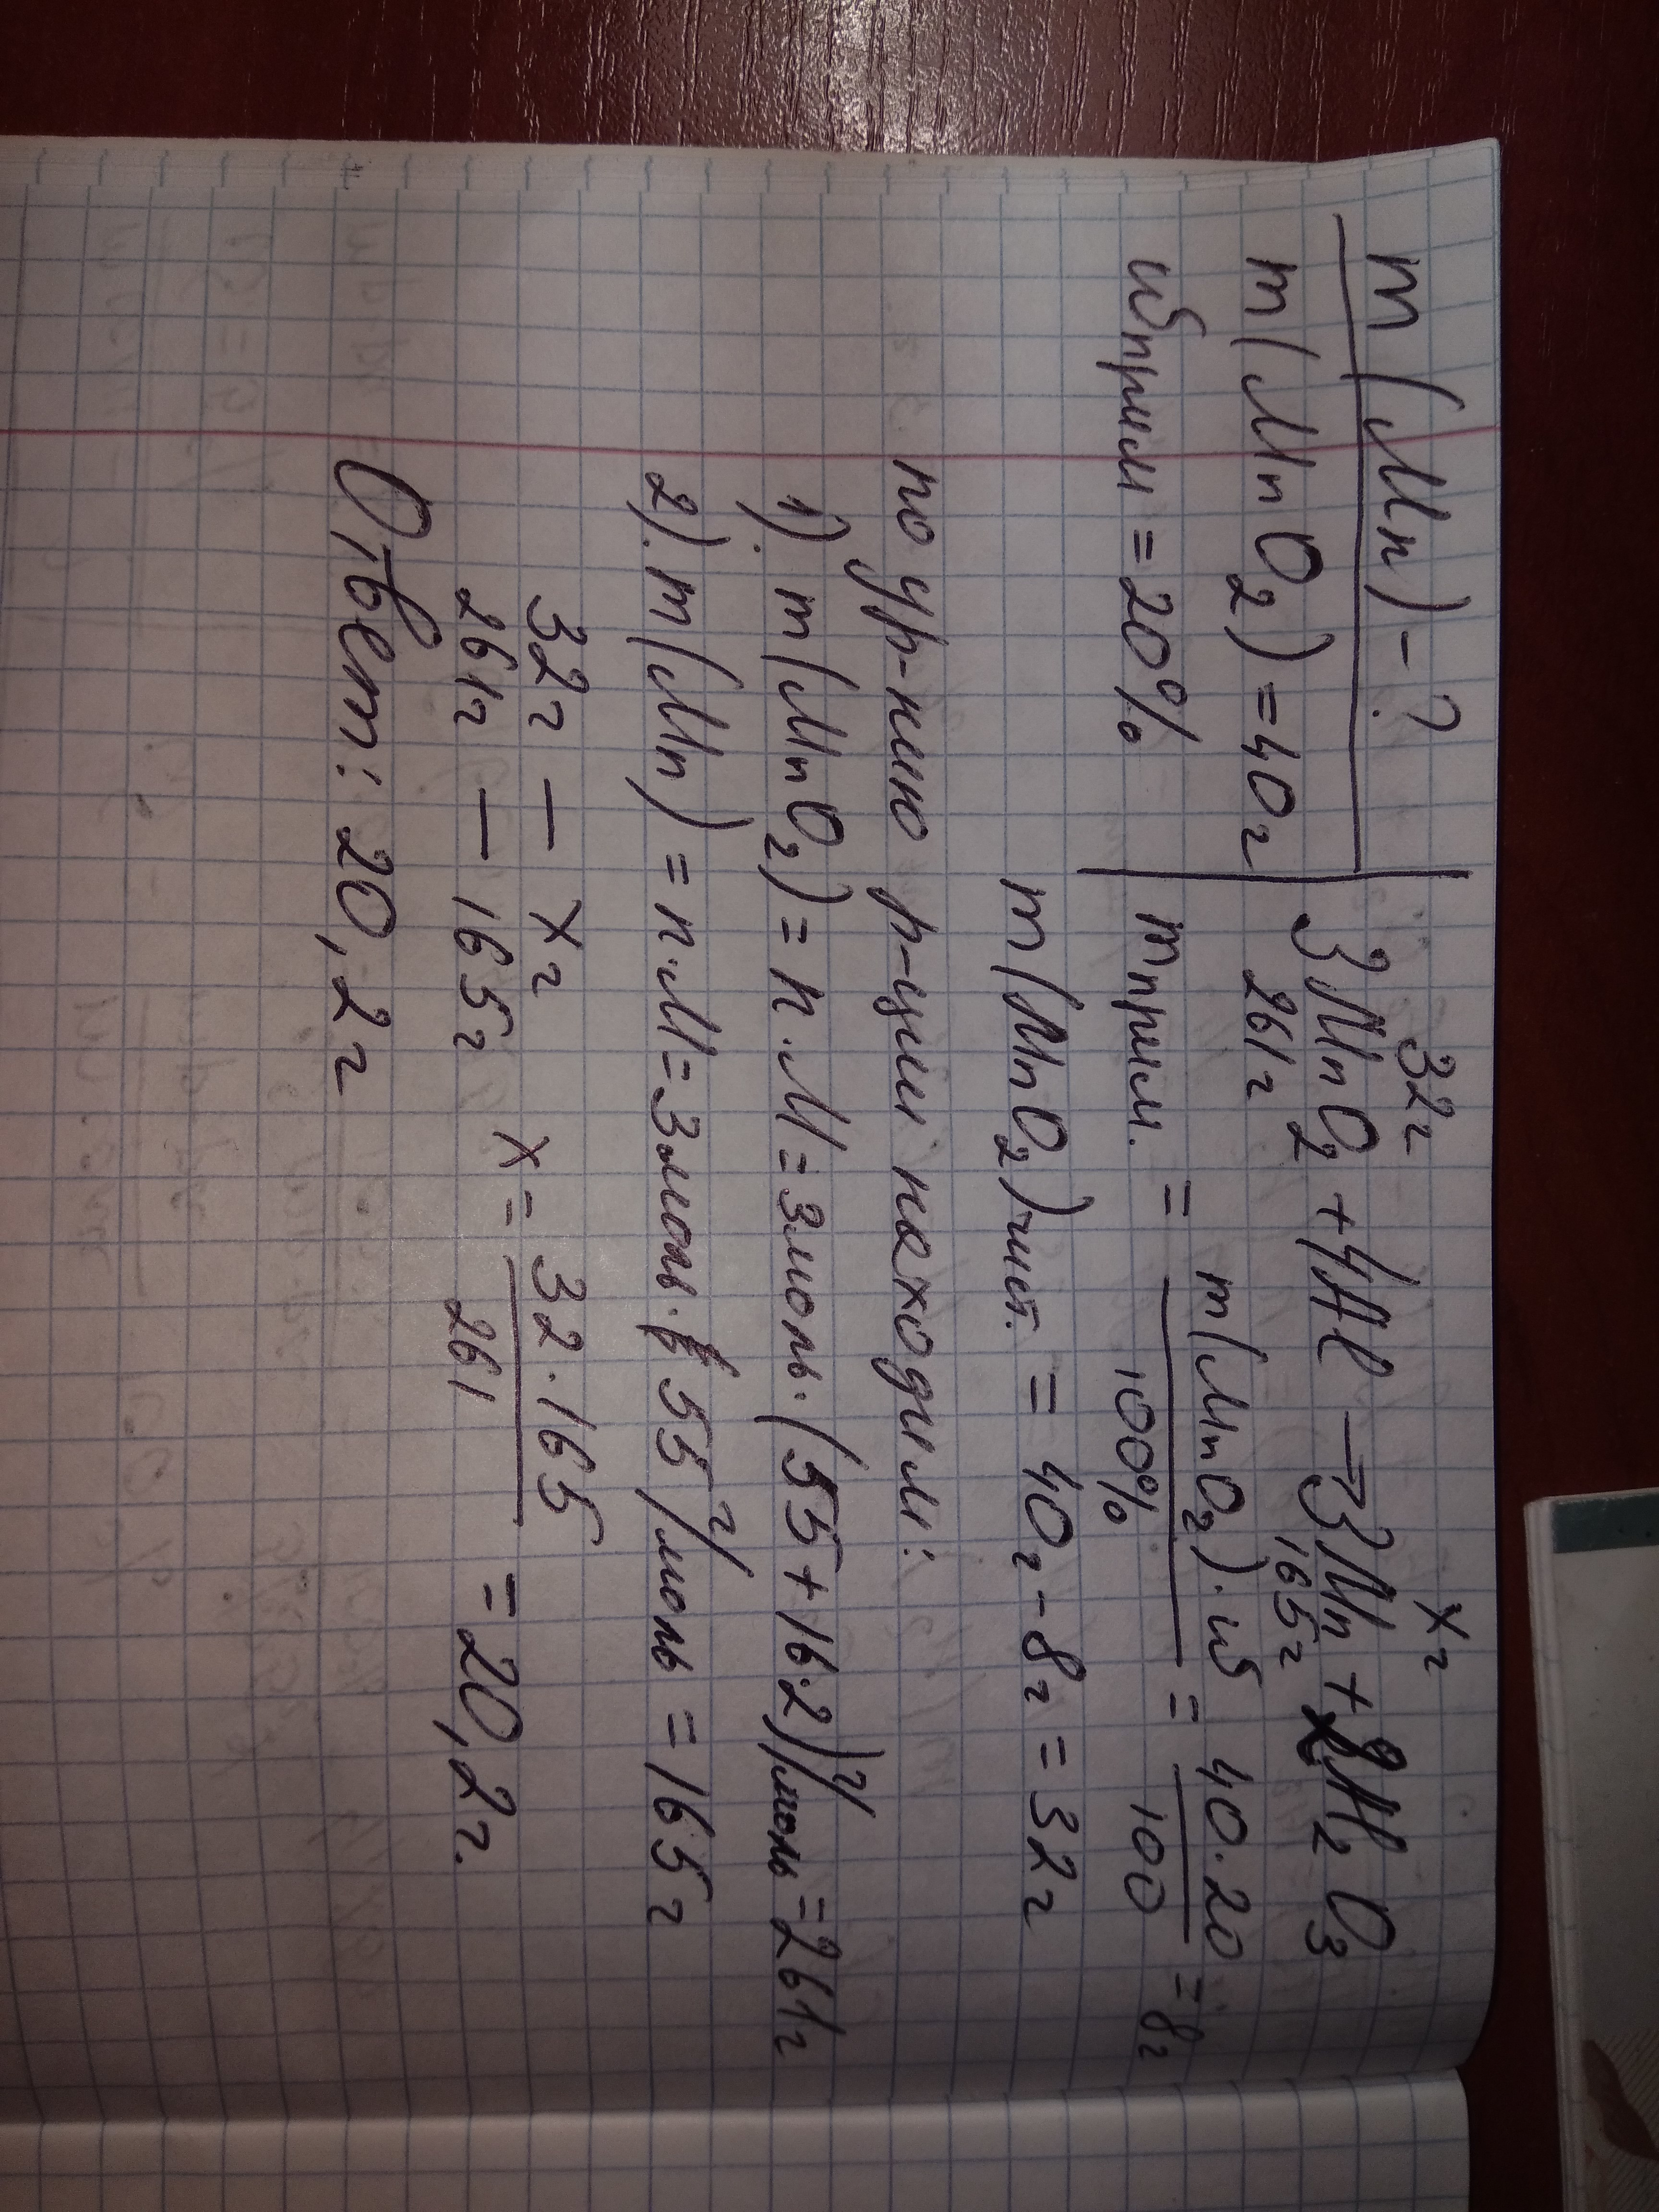 m(Mn)-?
32г xг
3MnO₂ + 4Al → 3Mn + 2Al₂O₃
261г 165г
m(MnO₂) = 40г
wприм = 20%
mприм. = m(MnO₂)·w / 100% = 40·20 / 100 = 8г
m(MnO₂)чист. = 40г - 8г = 32г
по ур-нию р-ции находим:
1). m(MnO₂) = n·M = 3моль·(55+16·2)г/моль = 261г
2). m(Mn) = n·M = 3моль·55г/моль = 165г
32г — xг
261г — 165г
x = 32·165 / 261 = 20,2г.
Ответ: 20,2г